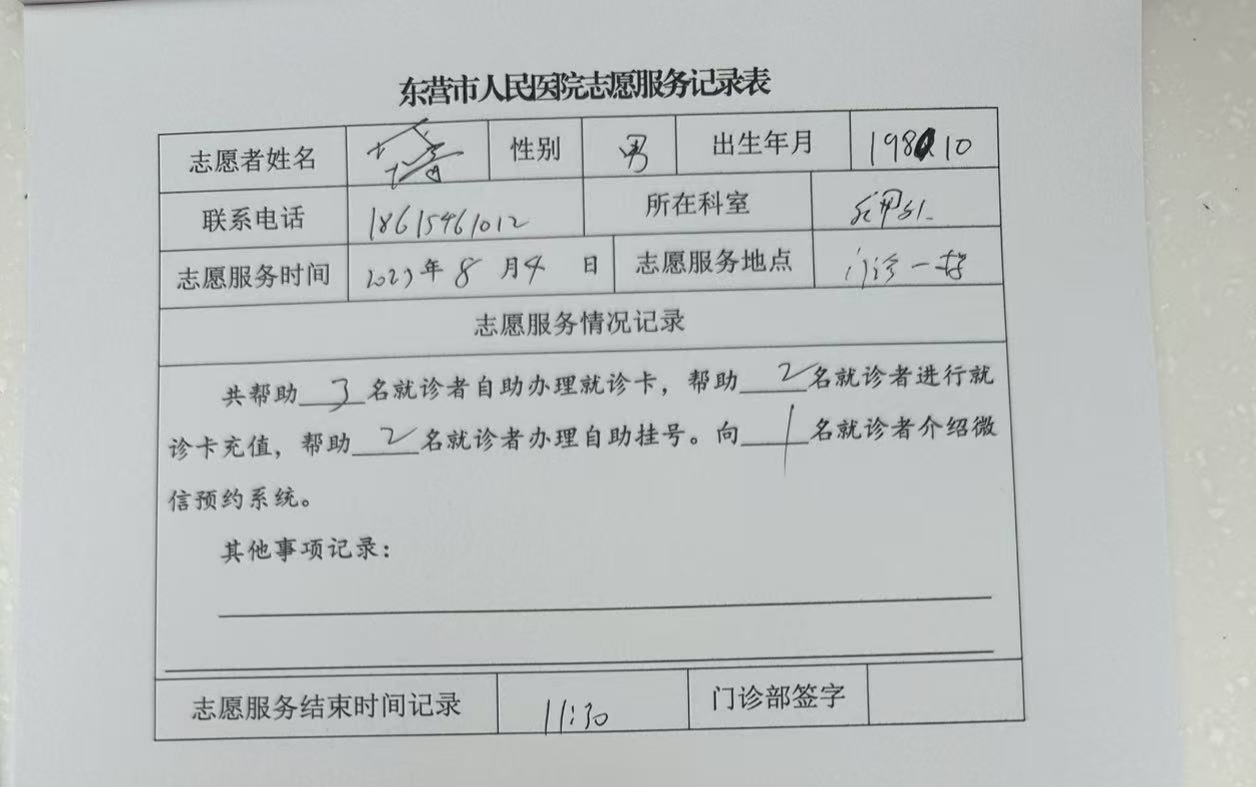 东营市人民医院志愿服务记录表
志愿者姓名 性别 男 出生年月 198 10
联系电话 18615461012 所在科室
志愿服务时间 2023年8月4日 志愿服务地点 门诊一楼
志愿服务情况记录
共帮助3名就诊者自助办理就诊卡，帮助2名就诊者进行就
诊卡充值，帮助2名就诊者办理自助挂号。向1名就诊者介绍微
信预约系统。
其他事项记录：
志愿服务结束时间记录 11:30 门诊部签字